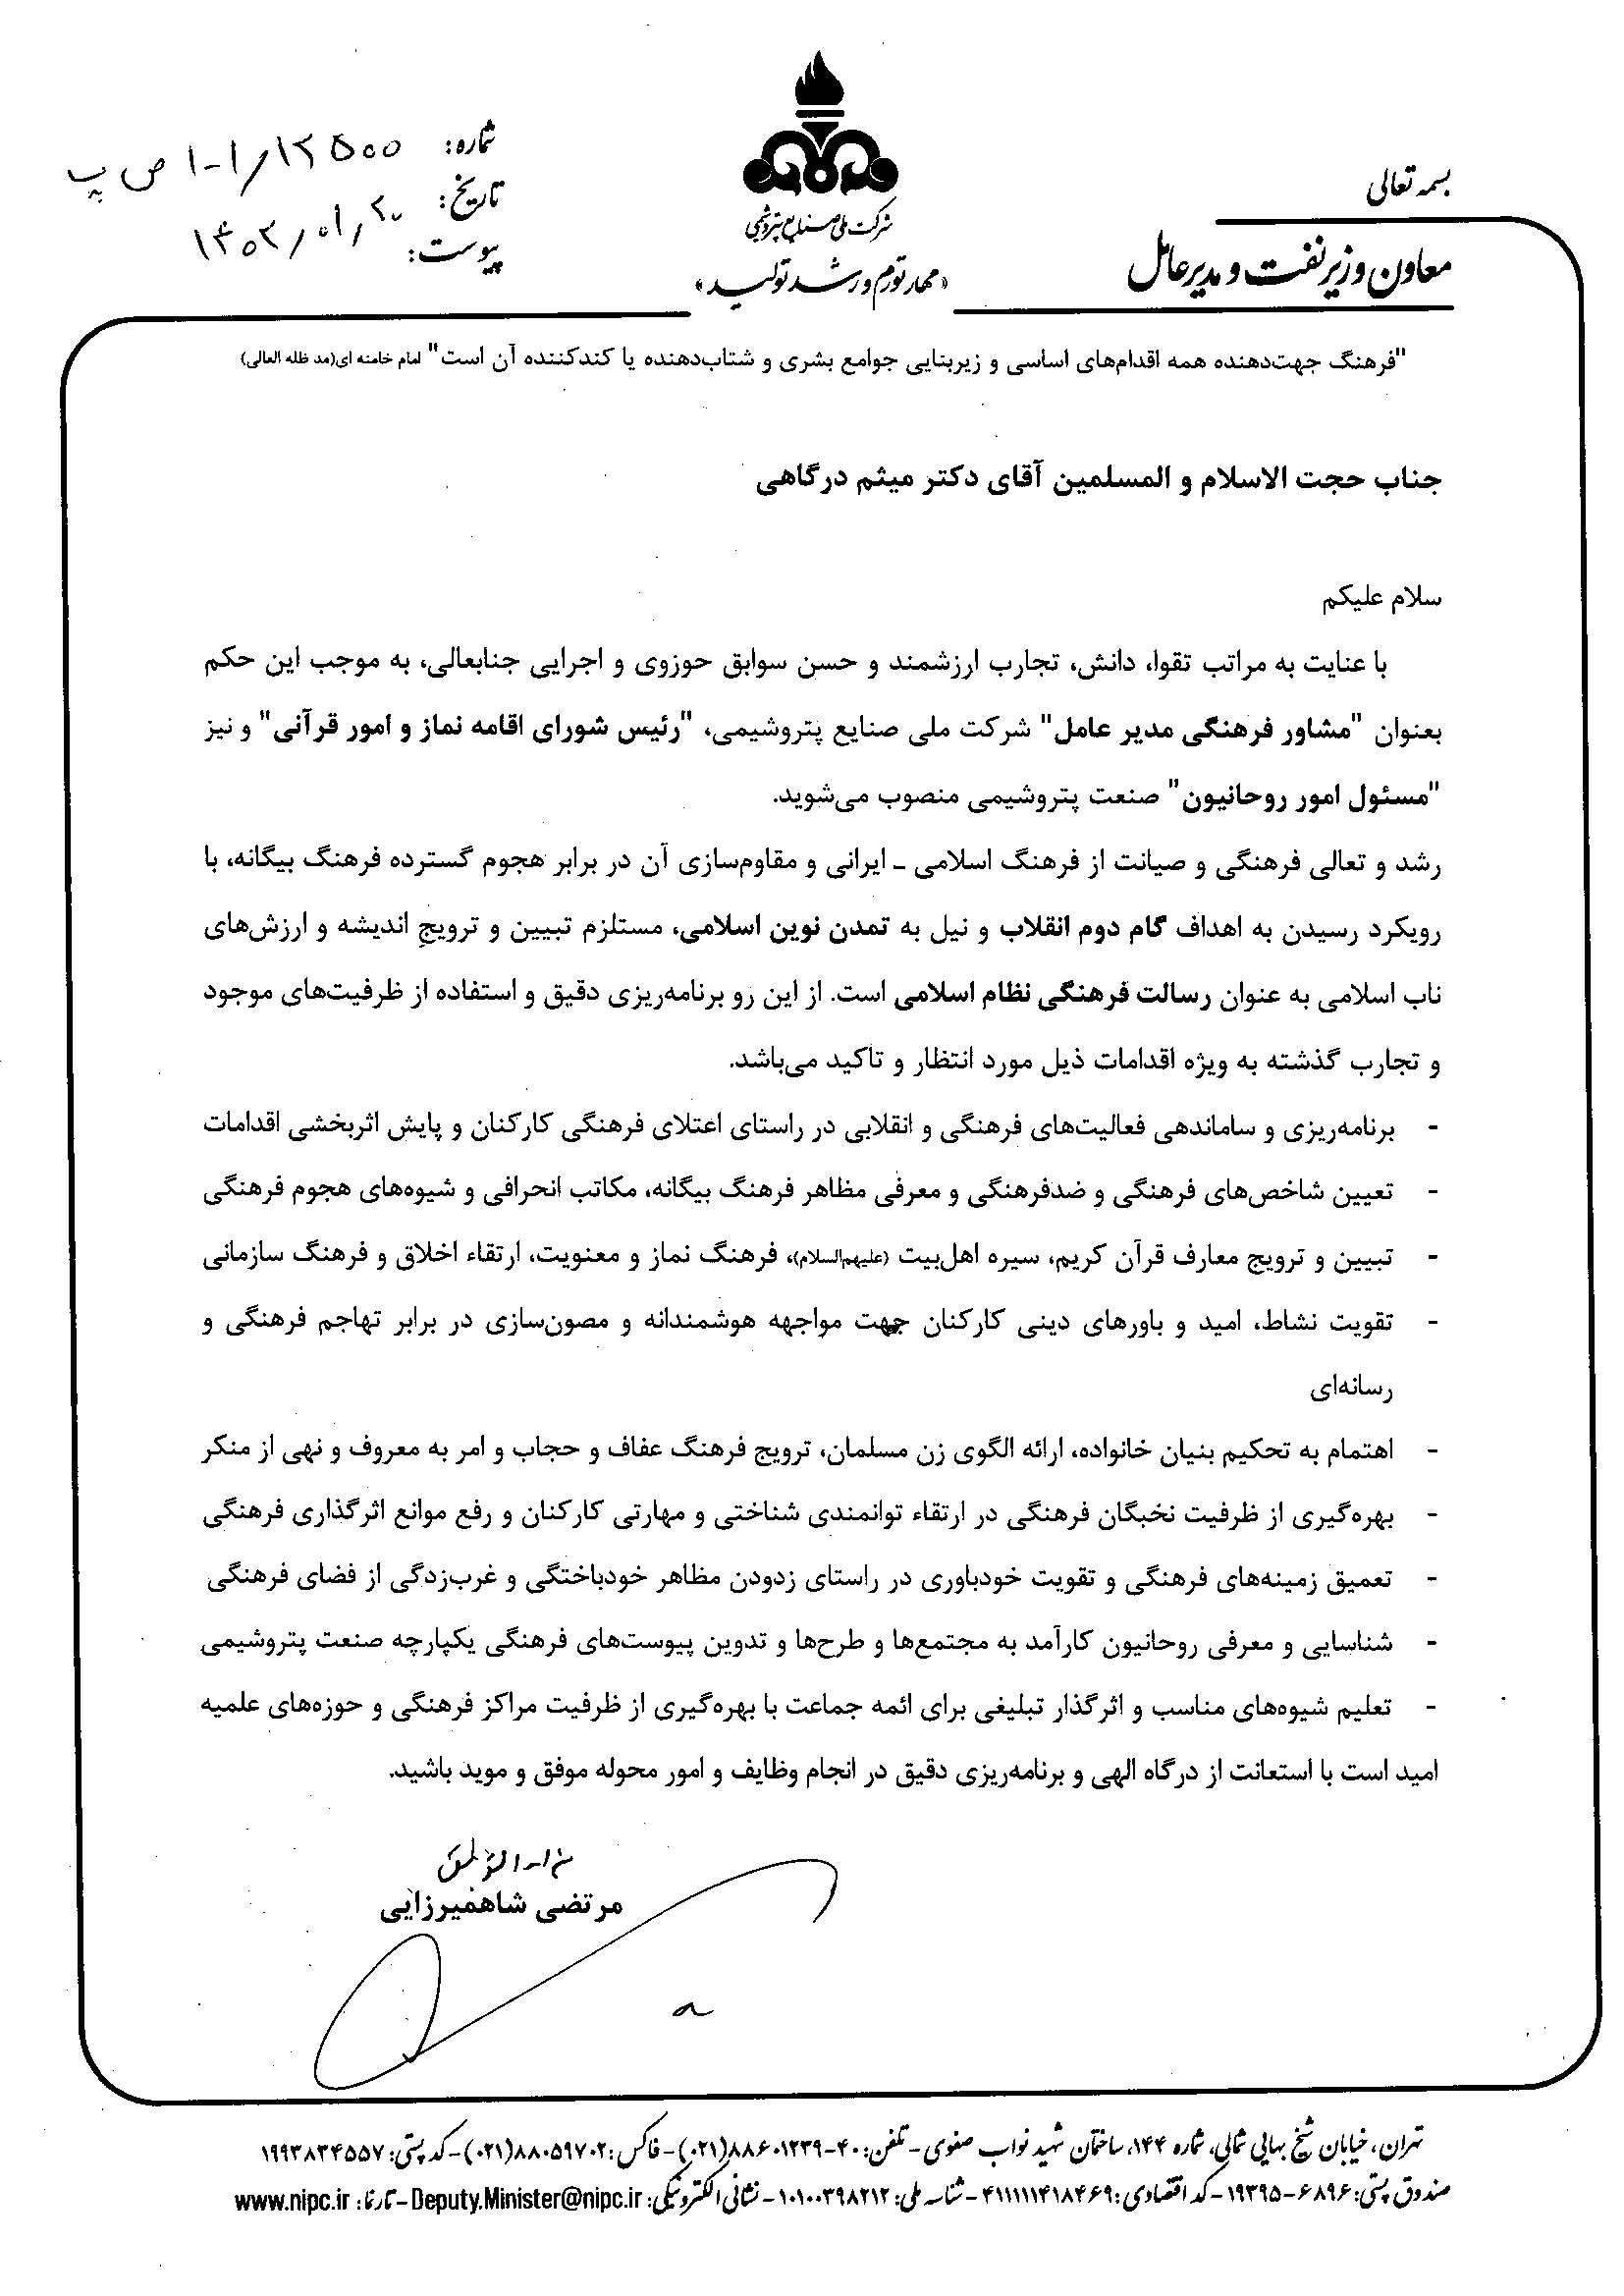 بسمه تعالی
معاون وزیر نفت و مدیرعامل
شرکت ملی صنایع پتروشیمی
«مهار تورم و رشد تولید»
شماره: ۱-۱/۱۲۵۰۰ ص پ
تاریخ: ۱۴۰۲/۰۱/۲۰
پیوست:
"فرهنگ جهت‌دهنده همه اقدام‌های اساسی و زیربنایی جوامع بشری و شتاب‌دهنده یا کندکننده آن است" امام خامنه ای(مد ظله العالی)
جناب حجت الاسلام و المسلمین آقای دکتر میثم درگاهی
سلام علیکم
با عنایت به مراتب تقوا، دانش، تجارب ارزشمند و حسن سوابق حوزوی و اجرایی جنابعالی، به موجب این حکم
بعنوان "مشاور فرهنگی مدیر عامل" شرکت ملی صنایع پتروشیمی، "رئیس شورای اقامه نماز و امور قرآنی" و نیز
"مسئول امور روحانیون" صنعت پتروشیمی منصوب می‌شوید.
رشد و تعالی فرهنگی و صیانت از فرهنگ اسلامی ـ ایرانی و مقاوم‌سازی آن در برابر هجوم گسترده فرهنگ بیگانه، با
رویکرد رسیدن به اهداف گام دوم انقلاب و نیل به تمدن نوین اسلامی، مستلزم تبیین و ترویج اندیشه و ارزش‌های
ناب اسلامی به عنوان رسالت فرهنگی نظام اسلامی است. از این رو برنامه‌ریزی دقیق و استفاده از ظرفیت‌های موجود
و تجارب گذشته به ویژه اقدامات ذیل مورد انتظار و تاکید می‌باشد.
- برنامه‌ریزی و ساماندهی فعالیت‌های فرهنگی و انقلابی در راستای اعتلای فرهنگی کارکنان و پایش اثربخشی اقدامات
- تعیین شاخص‌های فرهنگی و ضدفرهنگی و معرفی مظاهر فرهنگ بیگانه، مکاتب انحرافی و شیوه‌های هجوم فرهنگی
- تبیین و ترویج معارف قرآن کریم، سیره اهل‌بیت (علیهم‌السلام)، فرهنگ نماز و معنویت، ارتقاء اخلاق و فرهنگ سازمانی
- تقویت نشاط، امید و باورهای دینی کارکنان جهت مواجهه هوشمندانه و مصون‌سازی در برابر تهاجم فرهنگی و
رسانه‌ای
- اهتمام به تحکیم بنیان خانواده، ارائه الگوی زن مسلمان، ترویج فرهنگ عفاف و حجاب و امر به معروف و نهی از منکر
- بهره‌گیری از ظرفیت نخبگان فرهنگی در ارتقاء توانمندی شناختی و مهارتی کارکنان و رفع موانع اثرگذاری فرهنگی
- تعمیق زمینه‌های فرهنگی و تقویت خودباوری در راستای زدودن مظاهر خودباختگی و غرب‌زدگی از فضای فرهنگی
- شناسایی و معرفی روحانیون کارآمد به مجتمع‌ها و طرح‌ها و تدوین پیوست‌های فرهنگی یکپارچه صنعت پتروشیمی
- تعلیم شیوه‌های مناسب و اثرگذار تبلیغی برای ائمه جماعت با بهره‌گیری از ظرفیت مراکز فرهنگی و حوزه‌های علمیه
امید است با استعانت از درگاه الهی و برنامه‌ریزی دقیق در انجام وظایف و امور محوله موفق و موید باشید.
مرتضی شاهمیرزایی
تهران، خیابان شیخ بهایی شمالی، شماره ۱۴۴، ساختمان شهید نواب صفوی - تلفن: ۴۰-۸۸۶۰۱۲۳۹(۰۲۱)- فاکس: ۸۸۰۵۹۷۰۲(۰۲۱)- کد پستی: ۱۹۹۳۸۳۴۵۵۷
صندوق پستی: ۶۸۹۶-۱۹۳۹۵- کد اقتصادی: ۴۱۱۱۱۱۴۱۸۴۶۹- شناسه ملی: ۱۰۱۰۰۳۹۸۲۱۲- نشانی الکترونیکی: Deputy.Minister@nipc.ir - تارنما: www.nipc.ir